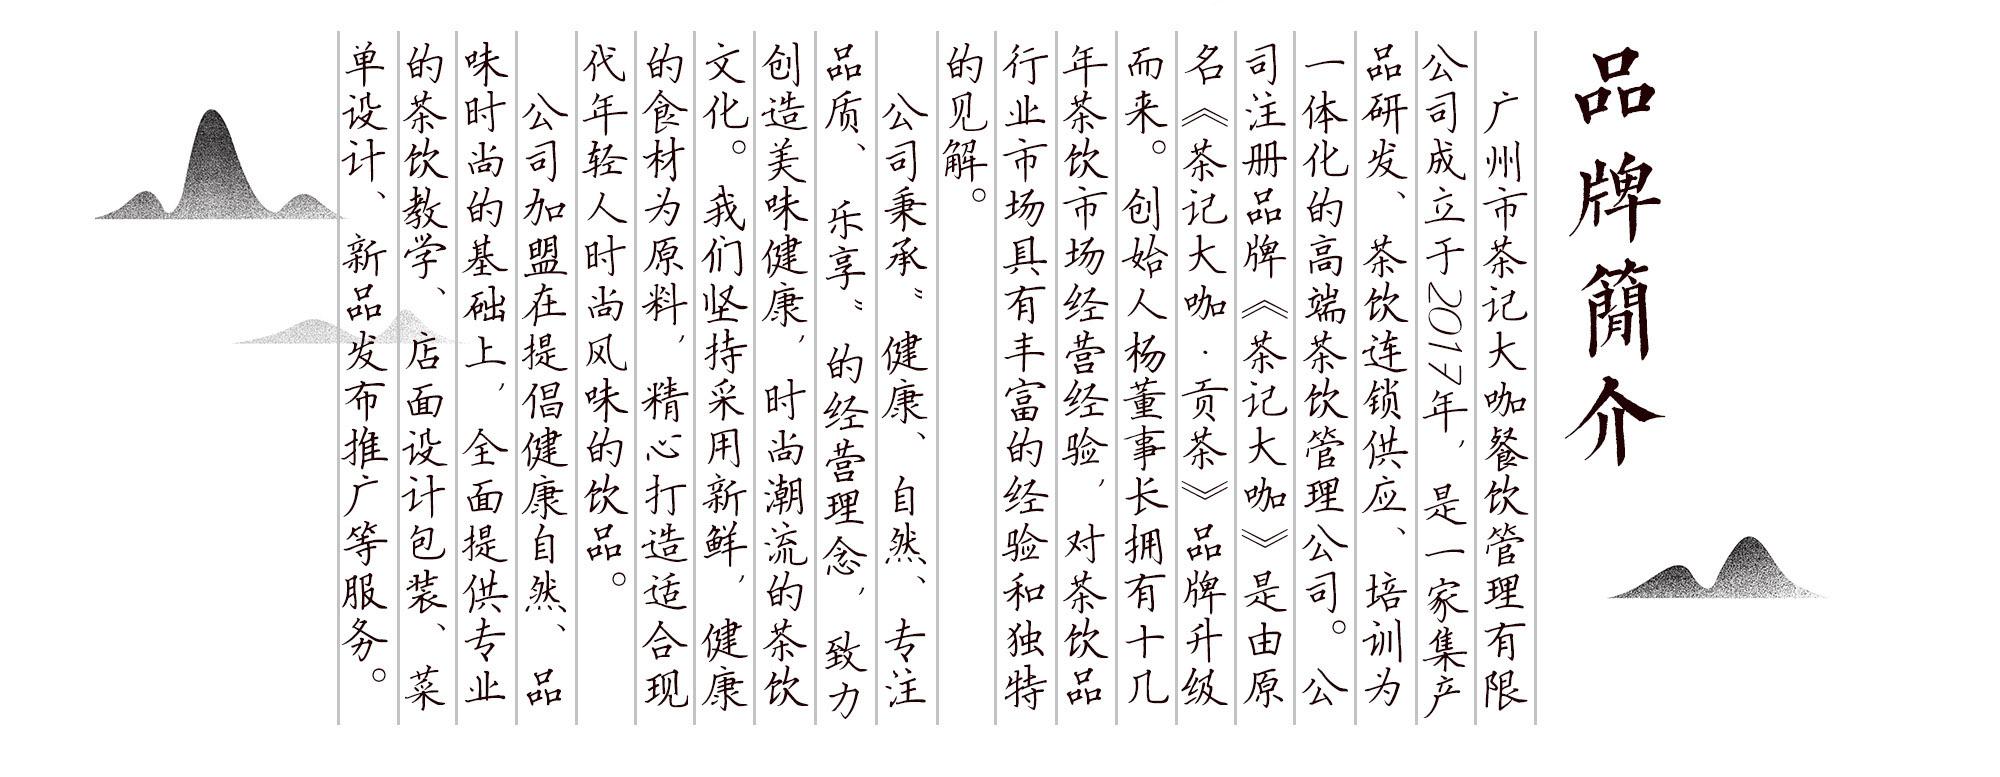 品牌簡介
广州市茶记大咖餐饮管理有限
公司成立于2017年，是一家集产
品研发、茶饮连锁供应、培训为
一体化的高端茶饮管理公司。公
司注册品牌《茶记大咖》是由原
名《茶记大咖·贡茶》品牌升级
而来。创始人杨董事长拥有十几
年茶饮市场经营经验，对茶饮品
行业市场具有丰富的经验和独特
的见解。
公司秉承“健康、自然、专注
品质、乐享”的经营理念，致力
创造美味健康，时尚潮流的茶饮
文化。我们坚持采用新鲜，健康
的食材为原料，精心打造适合现
代年轻人时尚风味的饮品。
公司加盟在提倡健康自然、品
味时尚的基础上，全面提供专业
的茶饮教学、店面设计包装、菜
单设计、新品发布推广等服务。